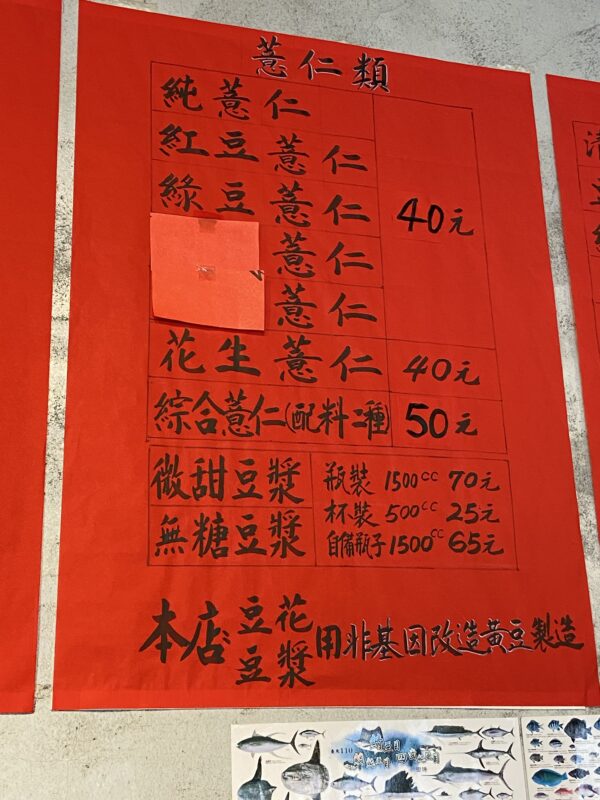 薏仁類
純薏仁
紅豆薏仁
綠豆薏仁 40元
薏仁
薏仁
花生薏仁 40元
綜合薏仁(配料二種) 50元
微甜豆漿 瓶裝 1500cc 70元
杯裝 500cc 25元
無糖豆漿 自備瓶子1500cc 65元
本店豆花豆漿用非基因改造黃豆製造